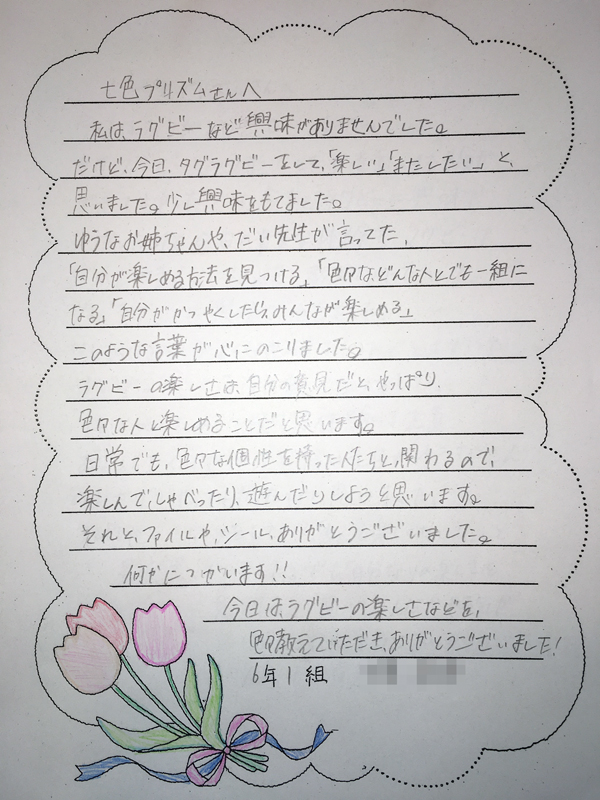 七色プリズムさんへ
私は、ラグビーなど興味がありませんでした。
だけど、今日、タグラグビーをして、「楽しい」「またしたい」と、
思いました。少し興味をもてました。
ゆうなお姉ちゃんや、だい先生が言ってた、
「自分が楽しめる方法を見つける」「色々などんな人とでも一組に
なる」「自分がかつやくしたら、みんなが楽しめる」
このような言葉が心にのこりました。
ラグビーの楽しさは、自分の意見だと、やっぱり、
色々な人と楽しめることだと思います。
日常でも、色々な個性を持った人たちと、関わるので、
楽しんで、しゃべったり、遊んだりしようと思います。
それと、ファイルや、シール、ありがとうございました。
何かにつかいます!!
今日は、ラグビーの楽しさなどを、
色々教えていただき、ありがとうございました!
6年1組